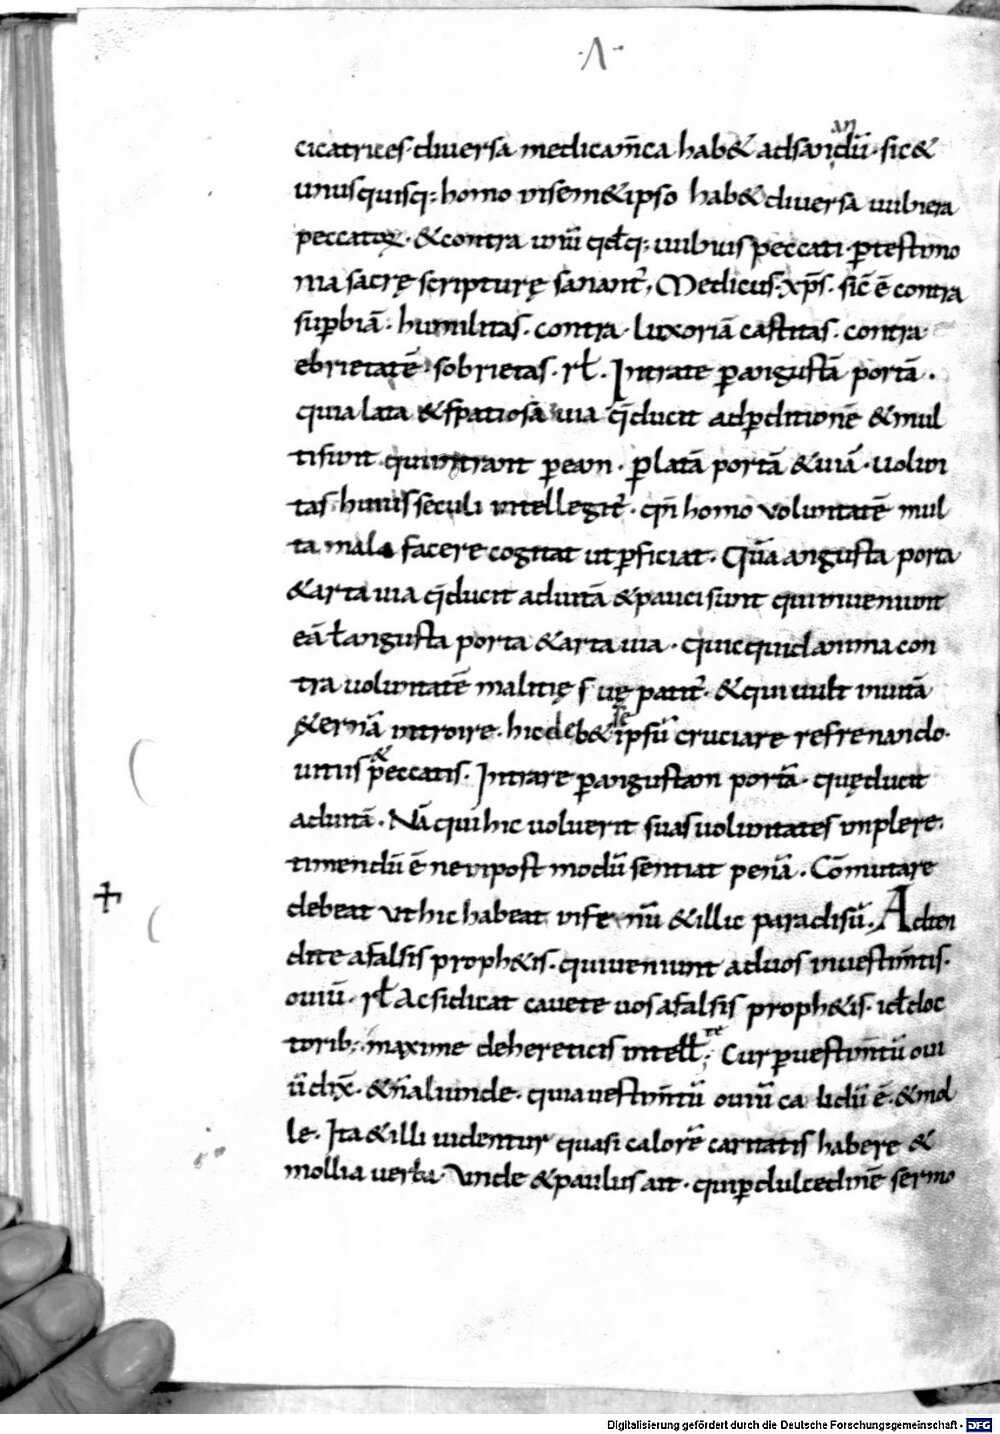 ·Λ··
an
cicatrices· diuersa medicam̄ca hab& adsandū· sic&
unusquisq: homo insem&ipso hab& diuersa uulnera
peccatoꝝ· &contra unū qdcq: uulnus peccati ꝑtestimo
nia sacrę scripturę sanant᷑, Medicus· xp̄s· sic̄ ē contra
suꝑbiā· humilitas· contra· luxoriā castitas· contra
ebrietatē· sobrietas· rƚ. Intrate ꝑangustā portā·
quia lata &spatiosa uia q̄ducit adꝑditionē &mul
tisunt quiintrant ꝑeam· ꝑlatā portā &uiā· uolun
tas huiusseculi intellegit᷑· qn̄ homo voluntatē mul
ta mala facere cogitat ut ꝑficiat· Quā angusta porta
&arta uia q̄ducit aduitā &pauci sunt quiinueniunt
eā ƚangusta porta &arta uia· quicquid anima con
tra uoluntatē malitię suę patit᷑· &qui uult inuitā
&ernā introire· hic deb& se ipsū cruciare refrenando·
uitiis & peccatis· Intrare ꝑangustam portā· quęducit
aduitā· Nā qui hic uoluerit suas uoluntates implere,
timendū ē ne inpost modū sentiat penā· Cōmutare
debeat ut hic habeat infernū &illic paradisū. Adten
dite afalsis proph&is· quiueniunt aduos inuestim̄tis·
ouiū· rƚ Acsidicat cauete uos afalsis proph&is· idƚ doc
torib; maxime dehereticis intell te; Cur ꝑuestim̄tū oui
ū dix̄· &n̄ aliunde· quia uestim̄tū ouiū ca lidū ē· &mol
le· Ita &illi uidentur quasi calorē caritatis habere &
mollia uerba· Unde &paulus ait· quiꝑdulcedinē sermo
Digitalisierung gefördert durch die Deutsche Forschungsgemeinschaft - DFG